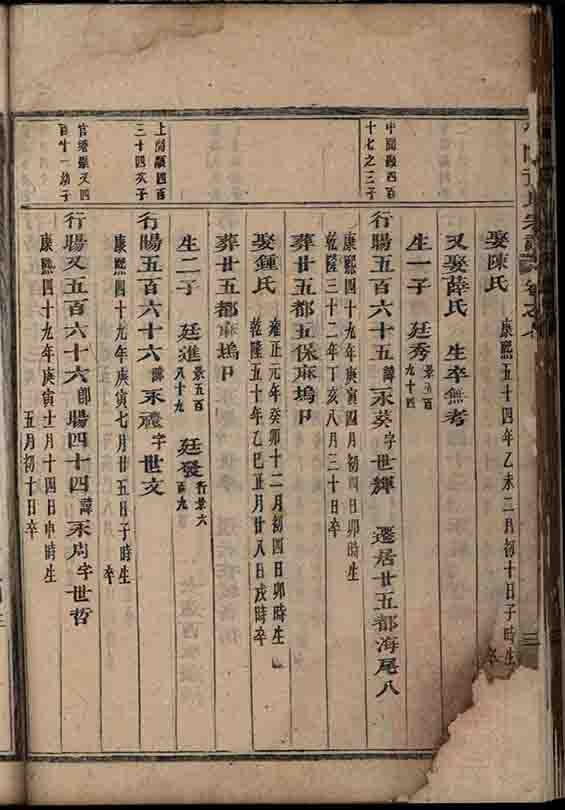 宗譜
卷之
三
娶陳氏
康熙五十四年乙未二月初十日子時生
卒
又娶薛氏 生卒無考
生一子 廷秀
景五百
九十四
中間橺四百
十七之三子
行賜五百六十五諱永葵字世輝 遷居廿五都海尾八
康熙四十九年庚寅四月初四日卯時生
乾隆三十二年丁亥八月三十日卒
葬廿五都五保麻塢口
娶鍾氏
雍正元年癸卯十二月初四日卯時生
乾隆五十年乙巳正月廿八日戌時卒
葬廿五都麻塢口
生二子 廷進
景五百
八十九
廷發
行景六
百九
四百
三十四次子
行賜五百六十六諱永禮字世文
康熙四十九年庚寅七月廿五日子時生
卒
又四
百廿一幼子
行賜又五百六十六 即賜四十四諱永周字世哲
康熙四十九年庚寅十一月十四日申時生
五月初十日卒